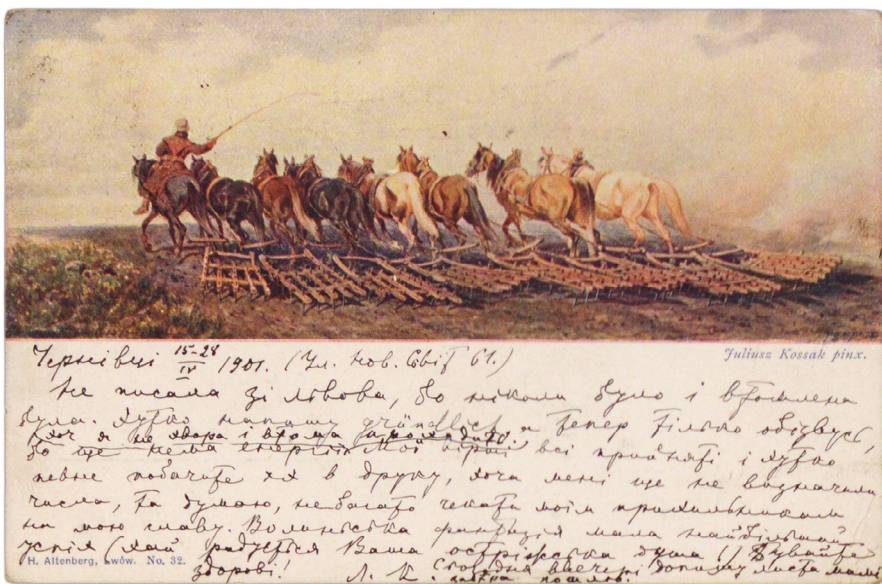 Juliusz Kossak pinx.
Чернівці 15-28/IV 1901. (Ул. Нов. Світ 61.)
Не писала зі Львова, бо ніколи було і втомлена
була. Хутко напишу gründlich, а тепер тілько обізвусь,
хоч я не хвора і втома
бо ще нема енергії. Мої вірші всі прийняті і хутко
певне побачите їх в друку, хоча мені ще не визначили
числа, та думаю, небагато чекати моїм прихильникам
на мою славу. Волинська фантазія мала найбільший
успіх (хай радується Ваша острожська душа!) Бувайте
здорові! Л. К. Сьогодня ввечері допишу листа мамі
завтра пошлю.
H. Altenberg, Lwów. No. 32.